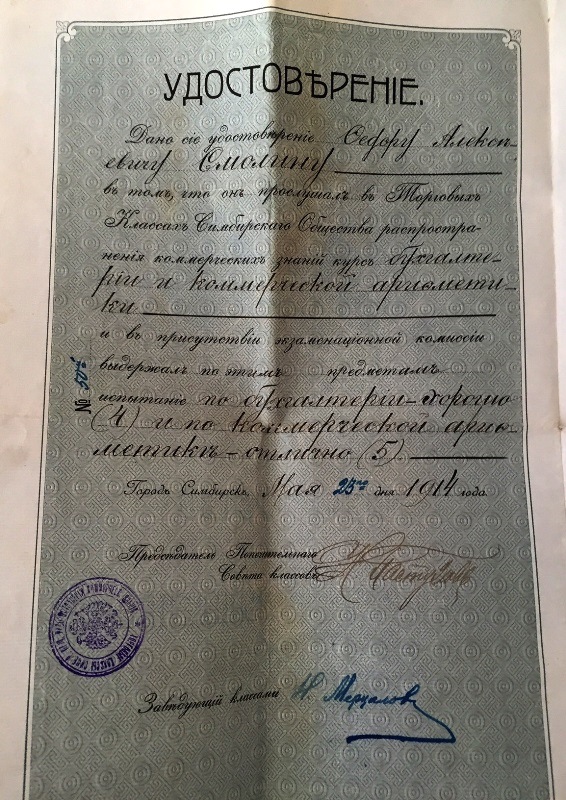 УДОСТОВѢРЕНІЕ.
Дано сіе удостовѣреніе Ѳедору Алексѣ-
евичу Смолину
въ томъ, что онъ прослушалъ въ Торговыхъ
Классахъ Симбирскаго Общества распростра-
ненія коммерческихъ знаній курсъ бухгалте-
ріи и коммерческой ариѳмети-
ки
и въ присутствіи экзаменаціонной комиссіи
выдержалъ по этимъ предметамъ
испытаніе по бухгалтеріи - хорошо
(4) и по коммерческой ариѳ-
метикѣ - отлично (5).
Городъ Симбирскъ, Мая 25 дня 1914 года.
№
Предсѣдатель Попечительнаго
Совѣта классовъ
Завѣдующій классами Н. Мерцаловъ